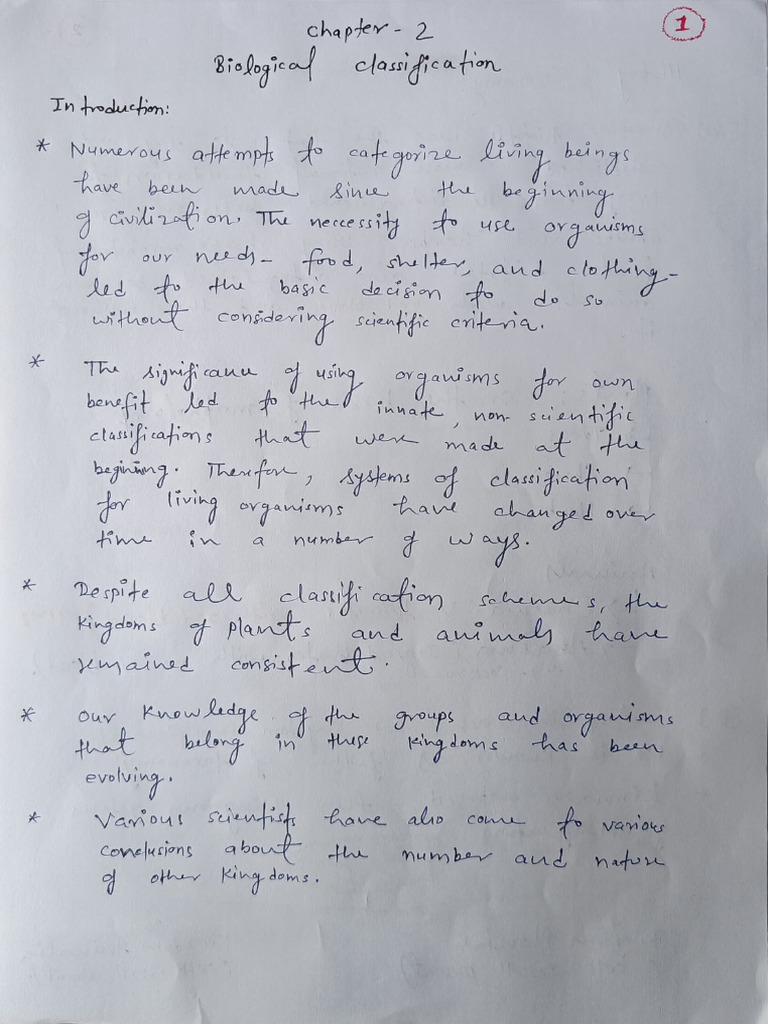 Chapter - 2
1
Biological classification
Introduction:
* Numerous attempts to categorize living beings
have been made since the beginning
of civilization. The neccessity to use organisms
for our needs - food, shelter, and clothing -
led to the basic decision to do so
without considering scientific criteria.
* The significance of using organisms for own
benefit led to the innate, non-scientific
classifications that were made at the
begining. Therefore, systems of classification
for living organisms have changed over
time in a number of ways.
* Despite all classification schemes, the
kingdoms of plants and animals have
remained consistent.
* Our knowledge of the groups and organisms
that belong in these kingdoms has been
evolving.
* Various scientists have also come to various
conclusions about the number and nature
of other kingdoms.